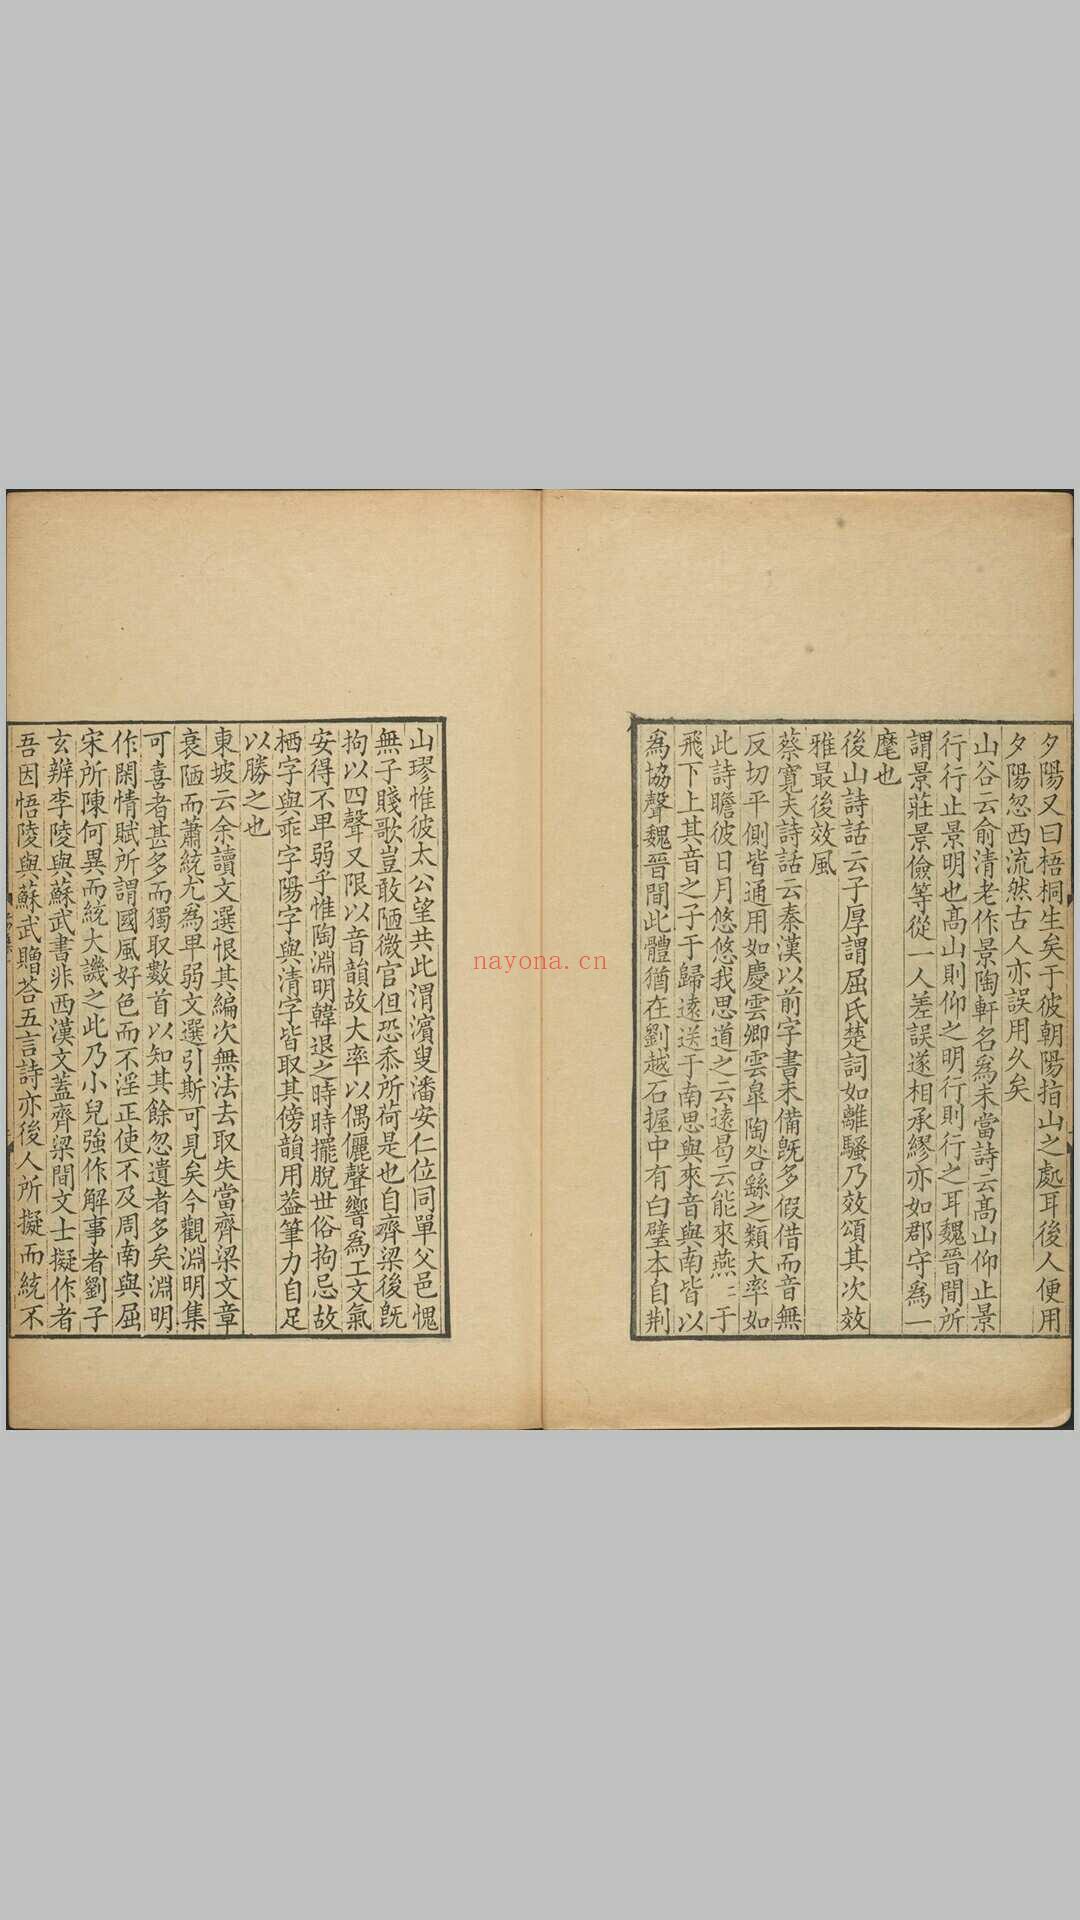 夕陽又曰梧桐生矣于彼朝陽指山之處耳後人便用
夕陽忽西流然古人亦誤用久矣
山谷云俞清老作景陶軒名爲未當詩云髙山仰止景
行行止景明也髙山則仰之明行則行之耳魏晉間所
謂景莊景儉等從一人差誤遂相承繆亦如郡守爲一
麾也
後山詩話云子厚謂屈氏楚詞如離騷乃效頌其次效
雅最後效風
蔡寛夫詩話云秦漢以前字書未備旣多假借而音無
反切平側皆通用如慶雲卿雲臯陶咎繇之類大率如
此詩瞻彼日月悠悠我思道之云遠曷云能來燕燕于
飛下上其音之子于歸遠送于南思與來音與南皆以
爲協聲魏晉間此體猶在劉越石握中有白璧本自荆
山璆惟彼太公望共此渭濱叟潘安仁位同單父邑愧
無子賤歌豈敢陋微官但恐忝所荷是也自齊梁後旣
拘以四聲又限以音韻故大率以偶儷聲響爲工文氣
安得不卑弱乎惟陶淵明韓退之時時擺脫世俗拘忌故
栖字與乖字陽字與清字皆取其傍韻用葢筆力自足
以勝之也
東坡云余讀文選恨其編次無法去取失當齊梁文章
衰陋而蕭統尤爲卑弱文選引斯可見矣今觀淵明集
可喜者甚多而獨取數首以知其餘忽遺者多矣淵明
作閑情賦所謂國風好色而不淫正使不及周南與屈
宋所陳何異而統大譏之此乃小兒強作解事者劉子
玄辨李陵與蘇武書非西漢文蓋齊梁間文士擬作者
吾因悟陵與蘇武贈荅五言詩亦後人所擬而統不
nayona.cn